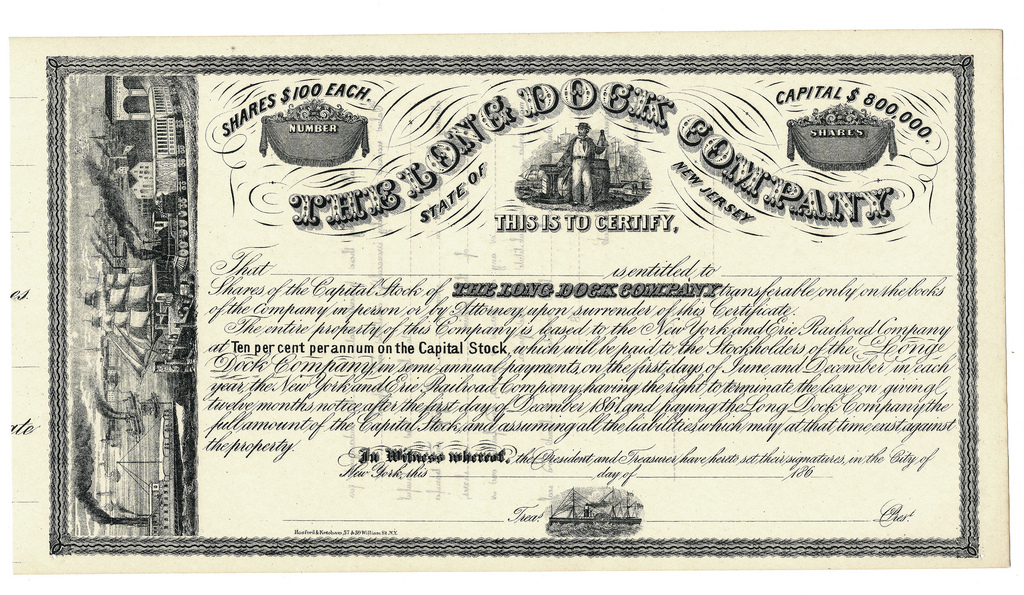 SHARES $100 EACH.
NUMBER
THE LONG DOCK COMPANY
CAPITAL $800,000.
SHARES
STATE OF NEW JERSEY
THIS IS TO CERTIFY,
That is entitled to
Shares of the Capital Stock of THE LONG DOCK COMPANY transferable only on the books
of the Company, in person, or by Attorney, upon surrender of this Certificate.
The entire property of this Company is leased to the New York and Erie Railroad Company
at Ten per cent per annum on the Capital Stock, which will be paid to the Stockholders of the Longe
Dock Company, in semi-annual payments, on the first days of June and December in each
year, the New York and Erie Railroad Company, having the right to terminate the lease on giving
twelve months, notice after the first day of December 1861, and paying the Long Dock Company, the
full amount of the Capital Stock, and assuming all the liabilities which may at that time exist against
the property.
In Witness whereof, the President, and Treasurer, have hereto set their signatures, in the City of
New York, this day of 186
Treas. Prest.
Hanford & Ketcham, 57 & 59 William St. N.Y.
es.
ate